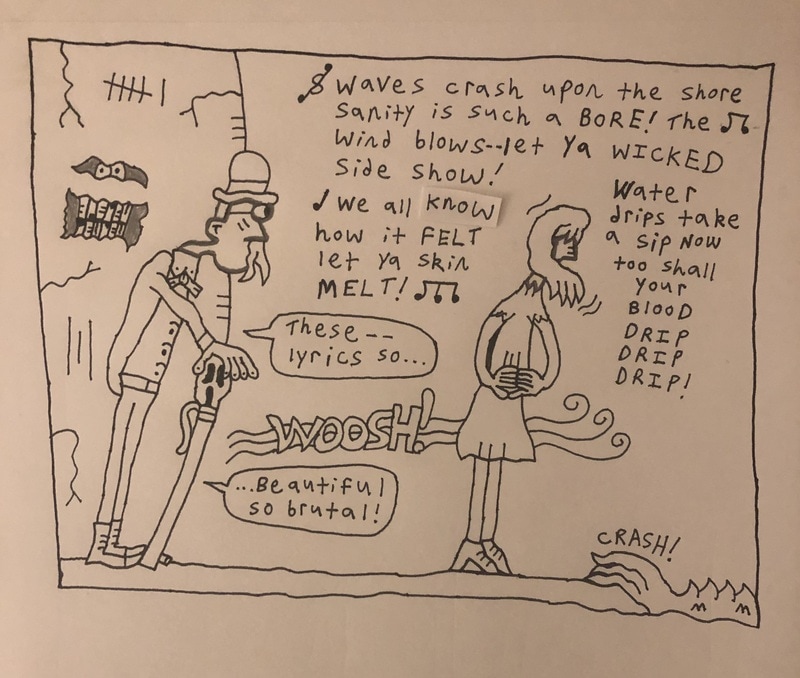 Waves crash upon the shore
Sanity is such a BORE! The
Wind blows--let ya WICKED
Side show!
We all know
how it FELT
let ya skin
MELT!
Water
drips take
a sip now
too shall
your
BLOOD
DRIP
DRIP
DRIP!
These--
lyrics so...
WOOSH!
...Beautiful
so brutal!
CRASH!